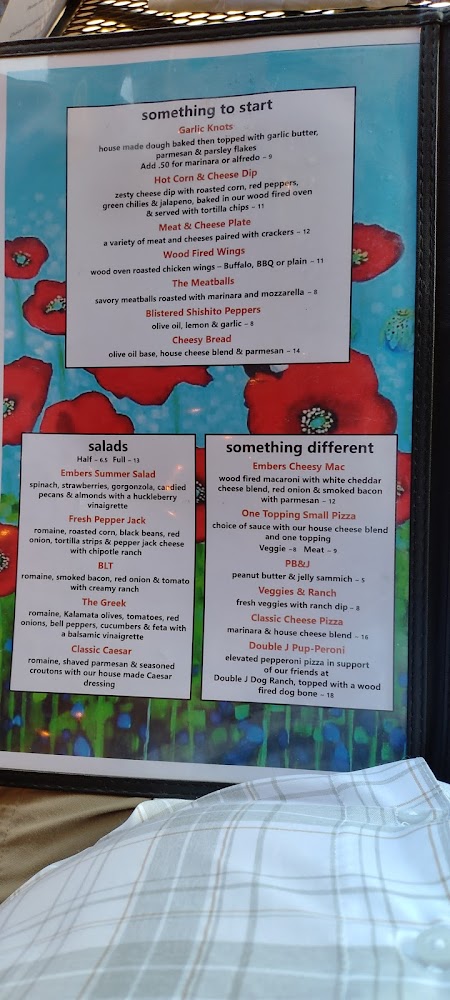 something to start
Garlic Knots
house made dough baked then topped with garlic butter,
parmesan & parsley flakes
Add .50 for marinara or alfredo – 9
Hot Corn & Cheese Dip
zesty cheese dip with roasted corn, red peppers,
green chilies & jalapeno, baked in our wood fired oven
& served with tortilla chips – 11
Meat & Cheese Plate
a variety of meat and cheeses paired with crackers – 12
Wood Fired Wings
wood oven roasted chicken wings – Buffalo, BBQ or plain – 11
The Meatballs
savory meatballs roasted with marinara and mozzarella – 8
Blistered Shishito Peppers
olive oil, lemon & garlic – 8
Cheesy Bread
olive oil base, house cheese blend & parmesan – 14
salads
Half – 6.5 Full – 13
Embers Summer Salad
spinach, strawberries, gorgonzola, candied
pecans & almonds with a huckleberry
vinaigrette
Fresh Pepper Jack
romaine, roasted corn, black beans, red
onion, tortilla strips & pepper jack cheese
with chipotle ranch
BLT
romaine, smoked bacon, red onion & tomato
with creamy ranch
The Greek
romaine, Kalamata olives, tomatoes, red
onions, bell peppers, cucumbers & feta with
a balsamic vinaigrette
Classic Caesar
romaine, shaved parmesan & seasoned
croutons with our house made Caesar
dressing
something different
Embers Cheesy Mac
wood fired macaroni with white cheddar
cheese blend, red onion & smoked bacon
with parmesan – 12
One Topping Small Pizza
choice of sauce with our house cheese blend
and one topping
Veggie – 8 Meat – 9
PB&J
peanut butter & jelly sammich – 5
Veggies & Ranch
fresh veggies with ranch dip – 8
Classic Cheese Pizza
marinara & house cheese blend – 16
Double J Pup-Peroni
elevated pepperoni pizza in support
of our friends at
Double J Dog Ranch, topped with a wood
fired dog bone – 18